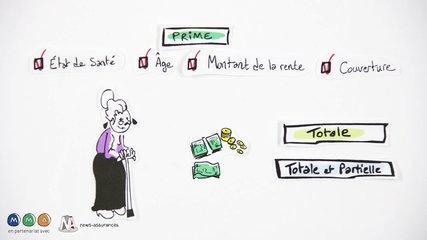 PRIME
État de Santé
Âge
Montant de la rente
Couverture
Totale
Totale et Partielle
MMA
en partenariat avec
NA
news-assurances